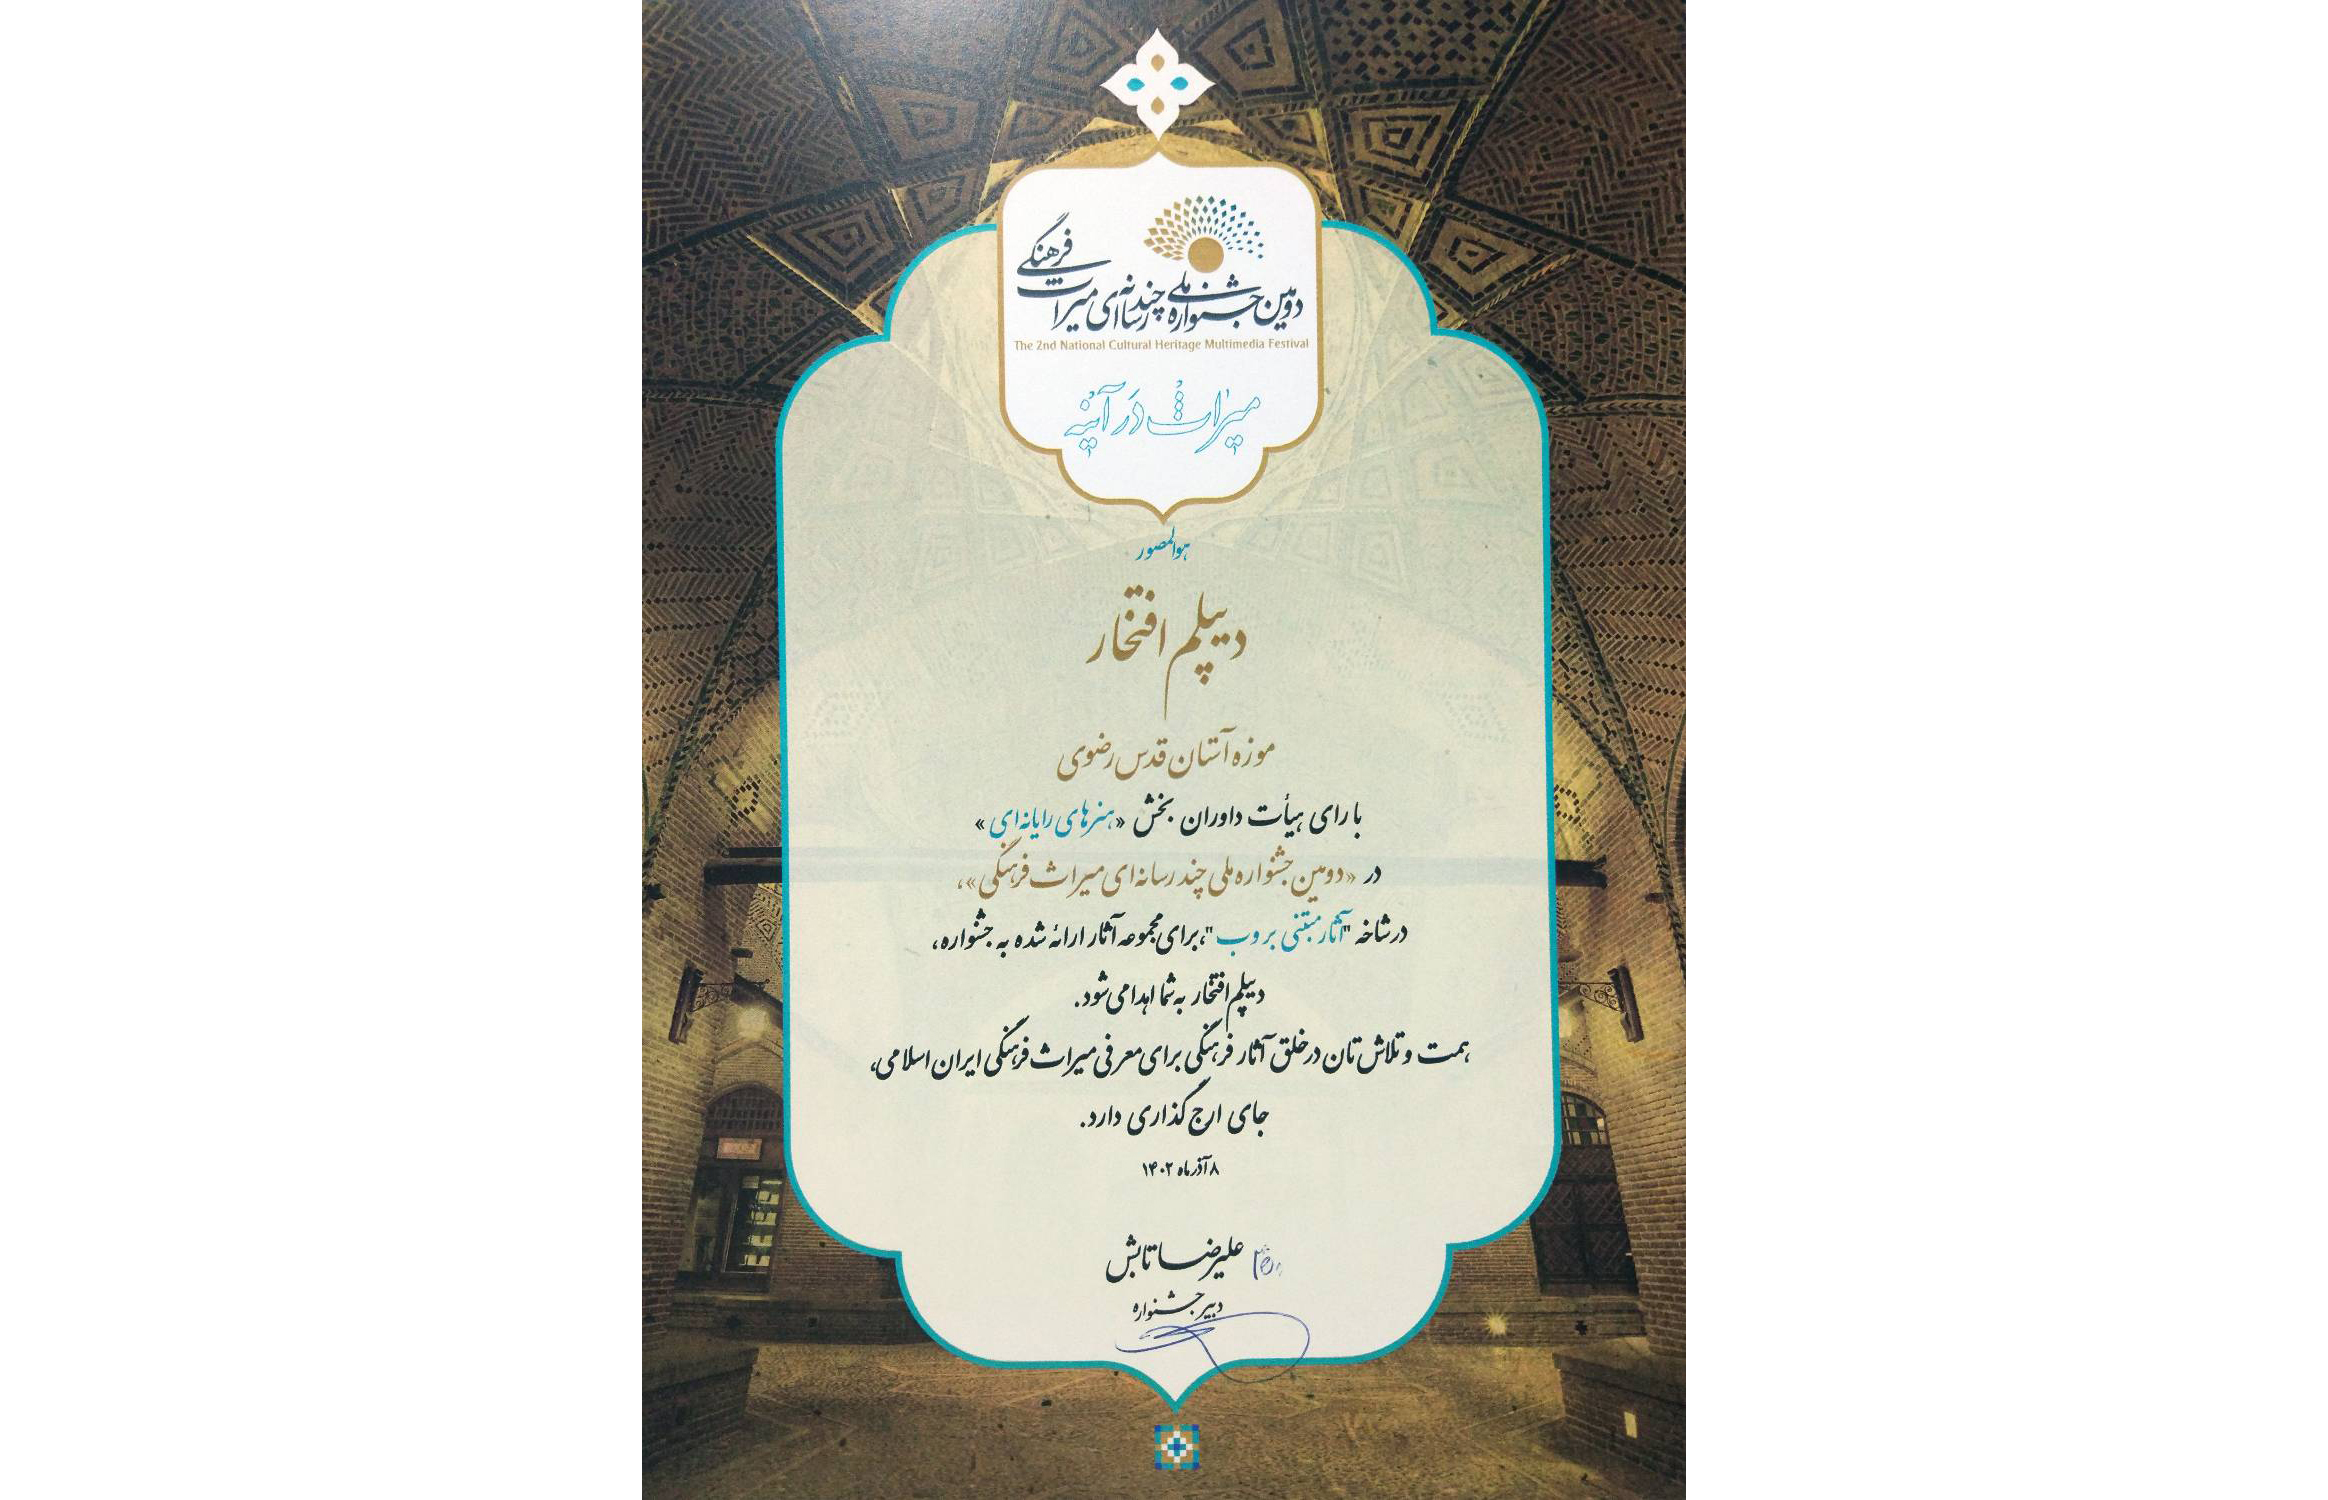 دومین جشنواره ملی چندرسانه‌ای میراث فرهنگی
The 2nd National Cultural Heritage Multimedia Festival
میراث در آینه
هوالمصور
دیپلم افتخار
موزه آستان قدس رضوی
با رای هیأت داوران بخش «هنرهای رایانه‌ای»
در «دومین جشنواره ملی چند رسانه‌ای میراث فرهنگی»،
در شاخه "آثار مبتنی بر وب"، برای مجموعه آثار ارائه شده به جشنواره،
دیپلم افتخار به شما اهدا می‌شود.
همت و تلاش تان در خلق آثار فرهنگی برای معرفی میراث فرهنگی ایران اسلامی،
جای ارج گذاری دارد.
۸ آذر ماه ۱۴۰۲
علیرضا تابش
دبیر جشنواره